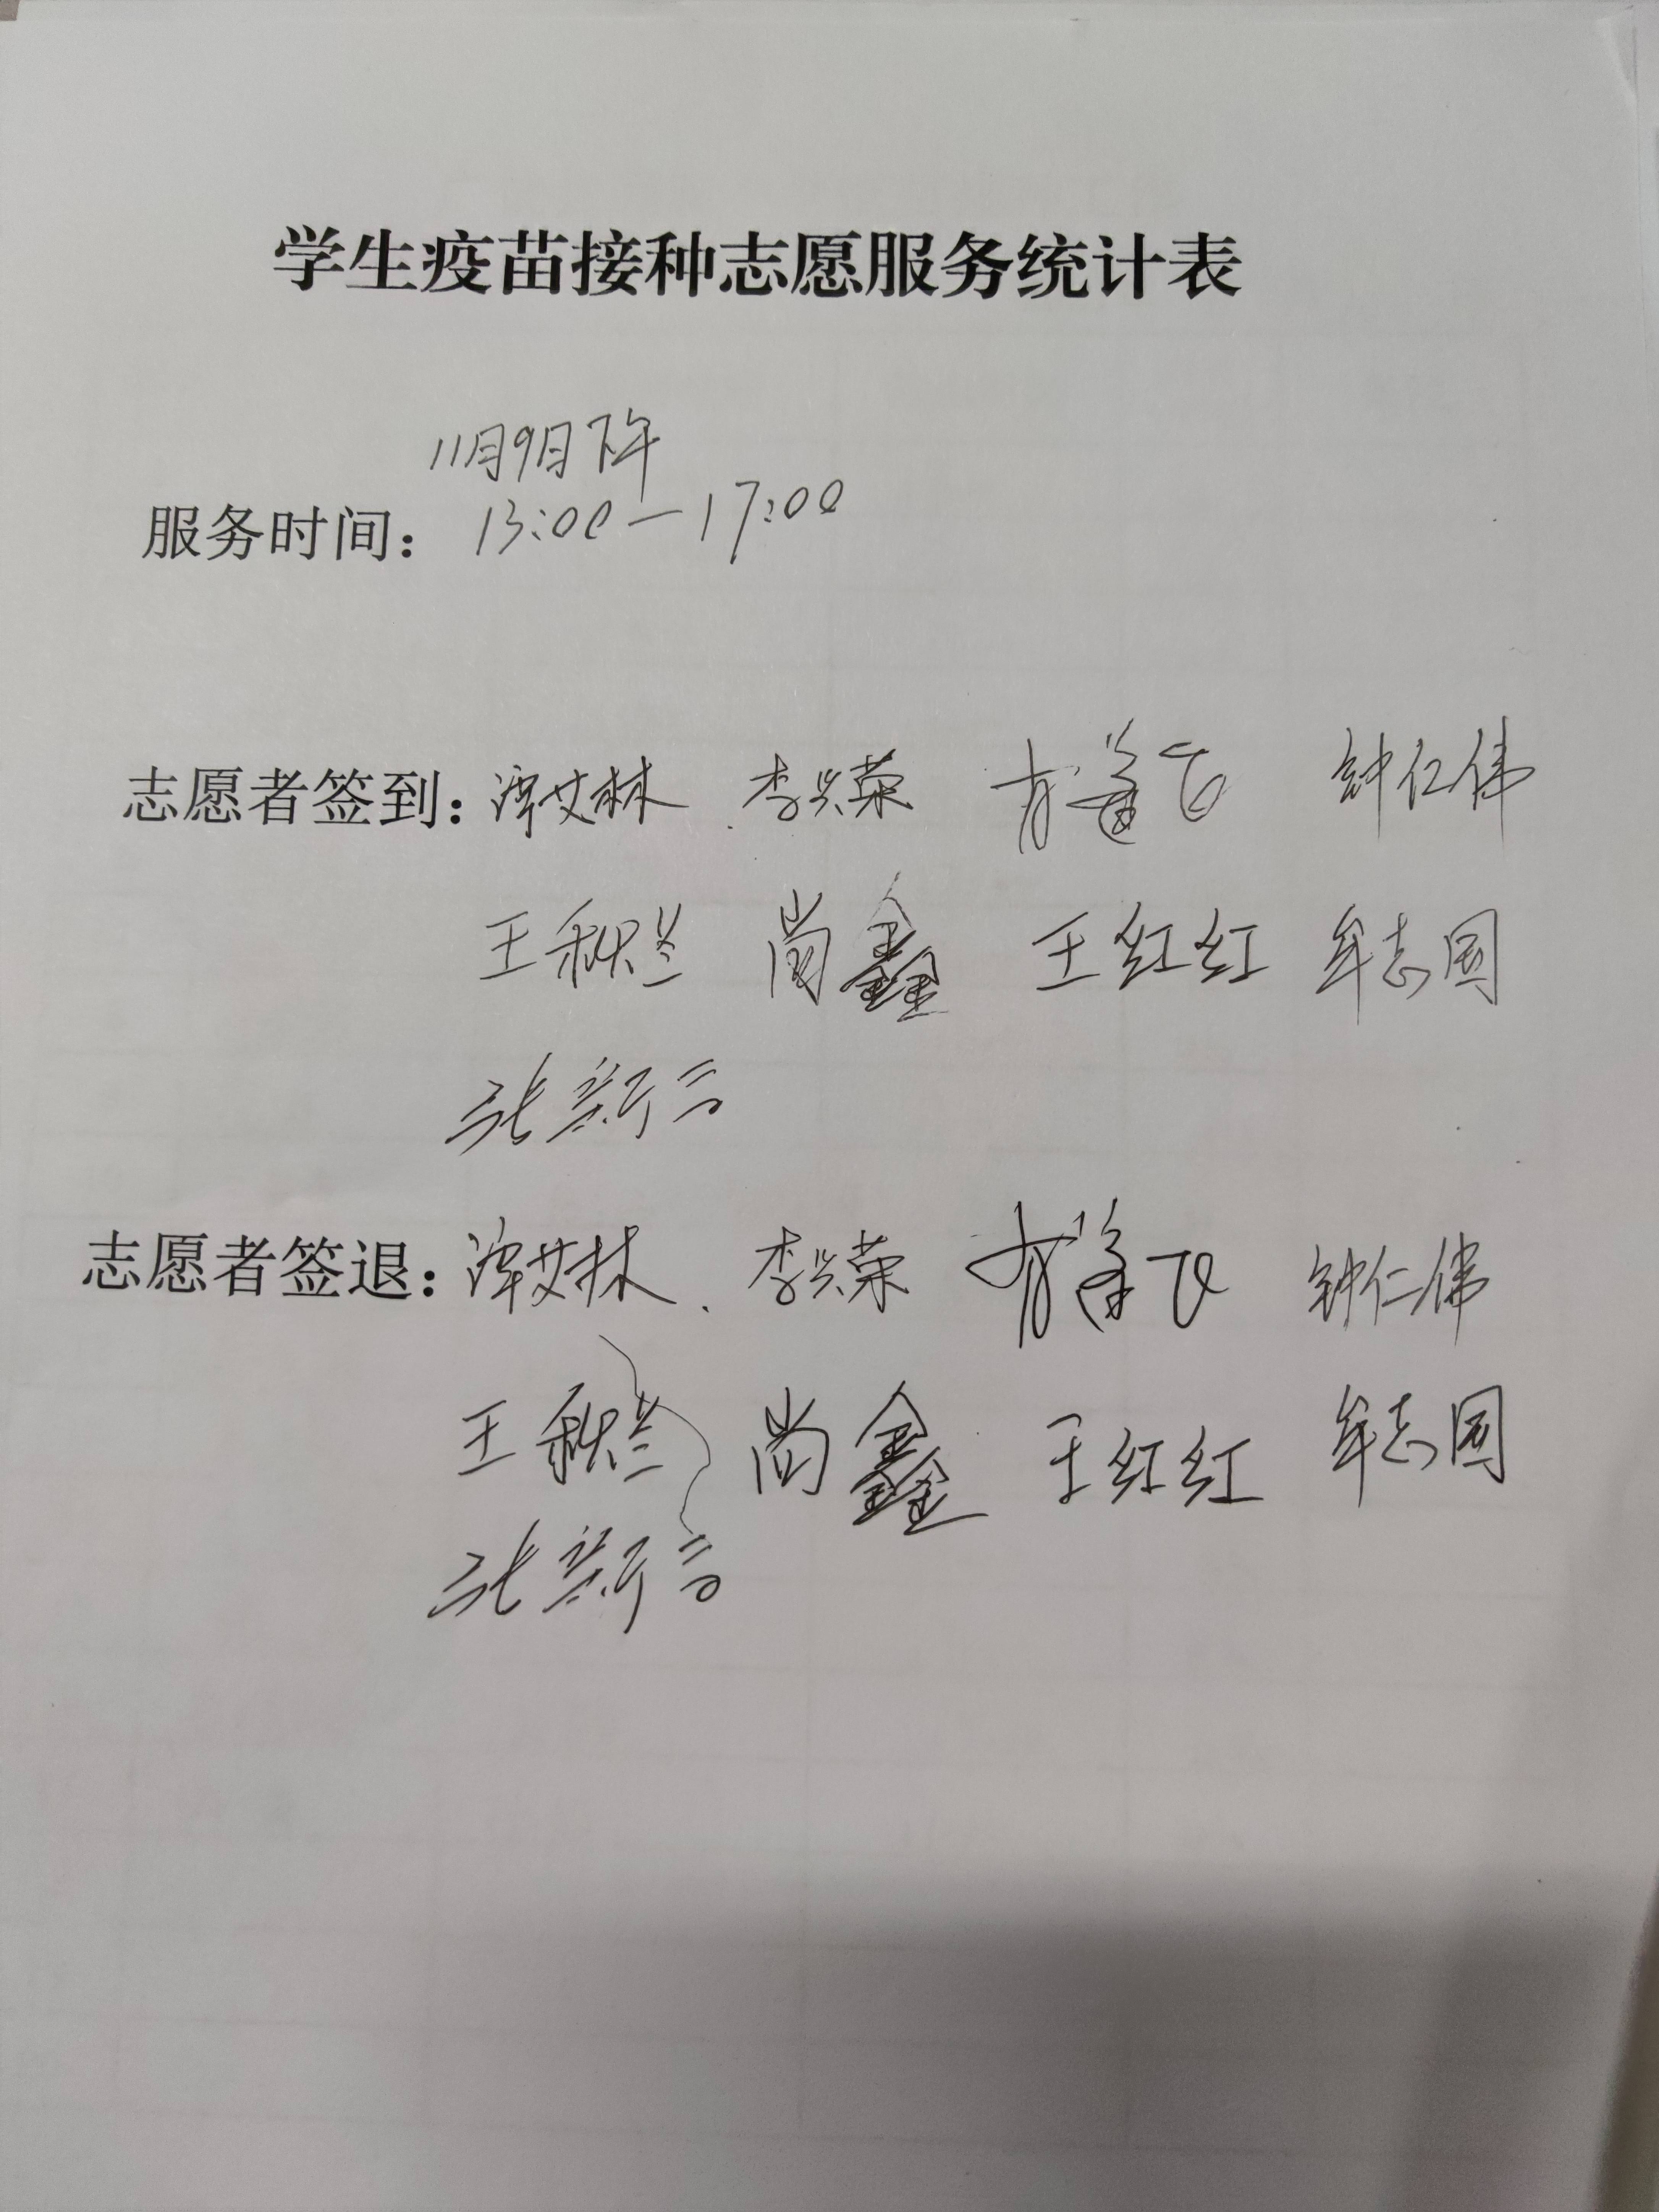 学生疫苗接种志愿服务统计表
11月9日下午
服务时间: 13:00—17:00
志愿者签到: 谭艾林 李兴荣 钟仁伟
王秋兰 尚鑫 王红红 牟志国
张新云
志愿者签退: 谭艾林 李兴荣 钟仁伟
王秋兰 尚鑫 王红红 牟志国
张新云